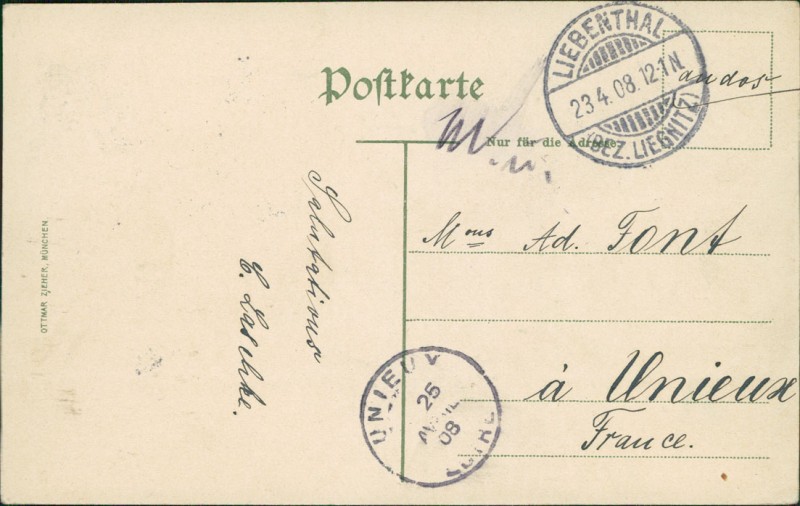 Postkarte
Nur für die Adresse
LIEBENTHAL
23.4.08.12-1N.
(BEZ. LIEGNITZ)
Mons Ad. Font
à Unieux
France.
Salutations
E. Laschke.
UNIEUX
25
08
LOIRE
OTTMAR ZIEHER, MÜNCHEN